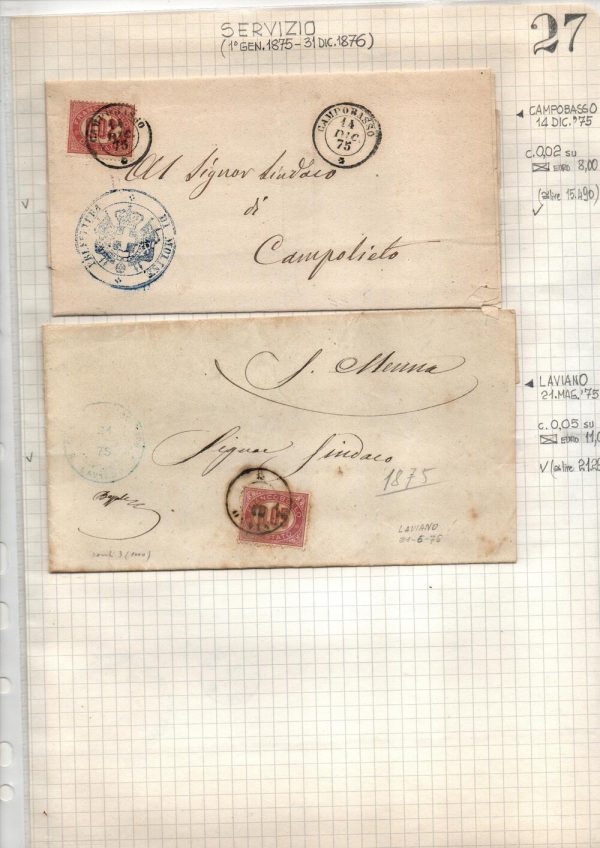 SERVIZIO
(1° GEN. 1875 - 31 DIC. 1876)
27
CAMPOBASSO
14
DIC.
75
CAMPOBASSO
14
DIC.
75
Al Signor Sindaco
di
Campolieto
PREFETTURA DI MOLISE
CAMPOBASSO
14 DIC. '75
c. 0,02 su
EURO 8,00
(ex lire 15.490)
S. Menna
Signor Sindaco
1875
21
75
0.05
LAVIANO
21-5-75
LAVIANO
21. MAG. '75
c. 0,05 su
EURO 11,0
V (ex lire 21.29